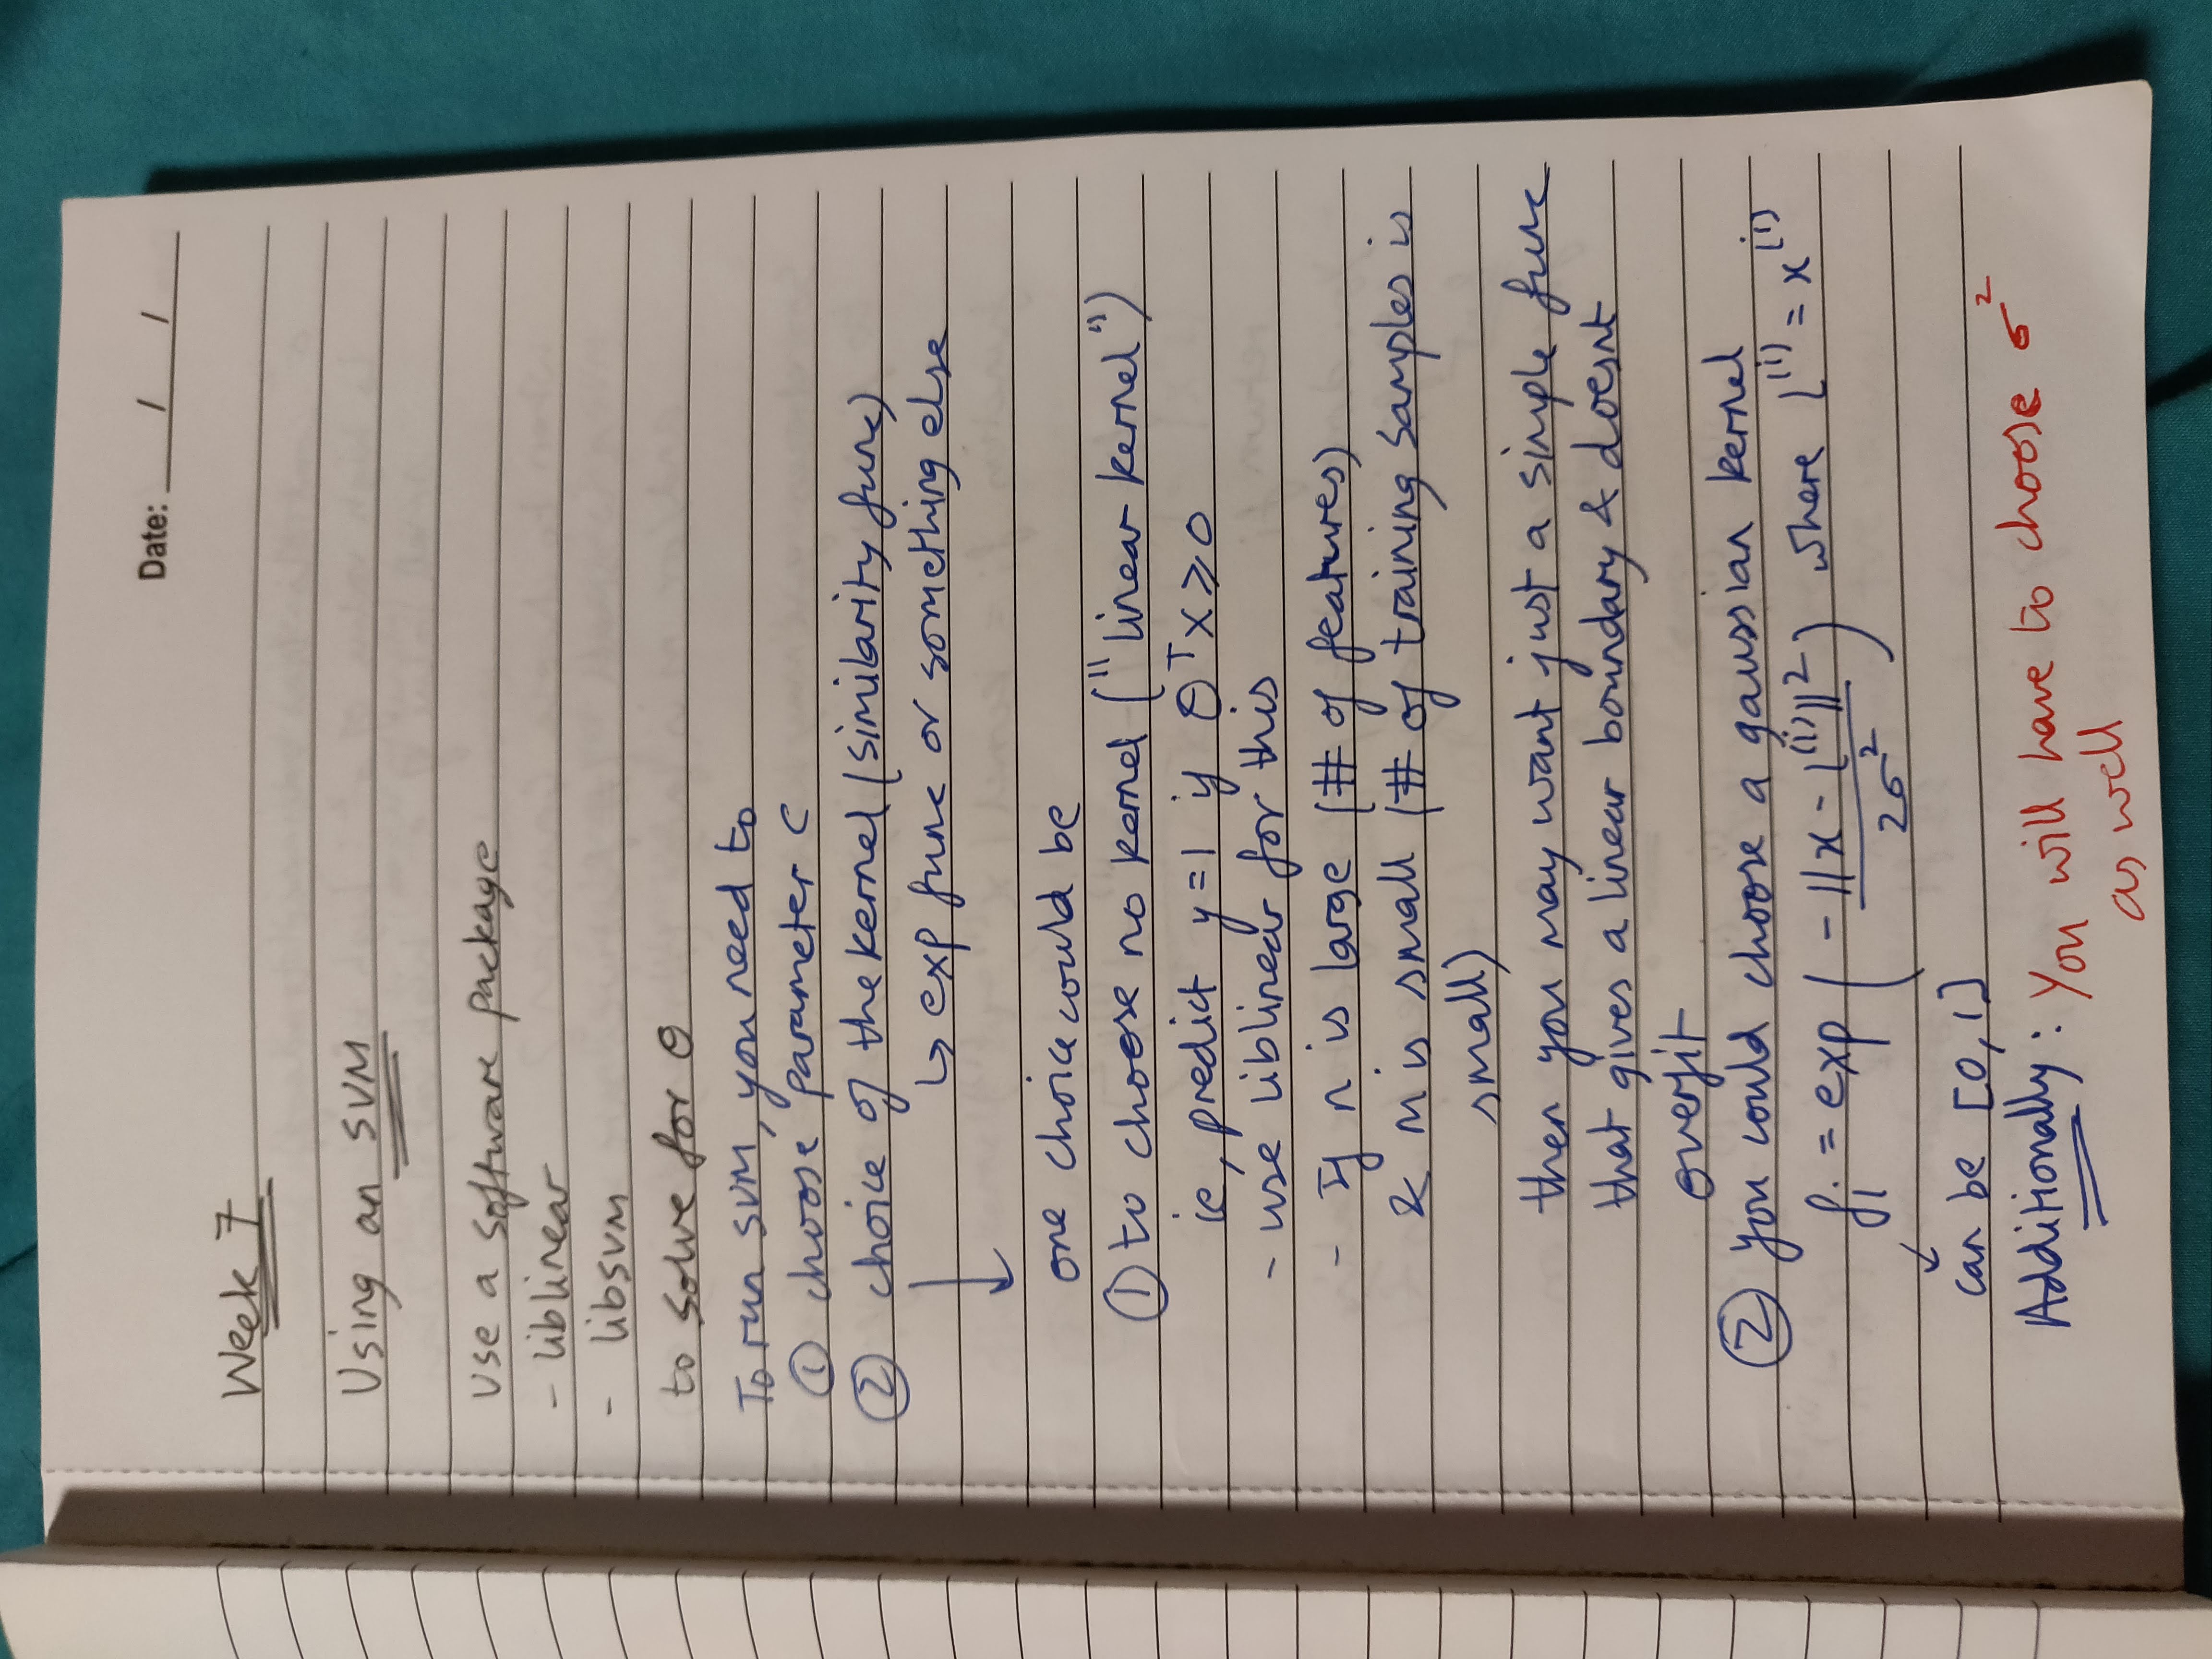 Date: / /
Week 7
Using an SVM
Use a software package
- liblinear
- libsvm
to solve for θ
To run SVM, you need to
① choose parameter C
② choice of the kernel (similarity func)
↳ exp func or something else
↓
one choice could be
① to choose no kernel ("linear kernel")
ie, predict y=1 if θᵀx ⩾ 0
- use liblinear for this
- If n is large (# of features)
& m is small (# of training samples is
small)
then you may want just a simple func
that gives a linear boundary & doesnt
overfit
② you could choose a gaussian kernel
fᵢ = exp ( -||x - l⁽ⁱ⁾||² / 2σ² ) where l⁽ⁱ⁾ = x⁽ⁱ⁾
↙
can be [0,1]
Additionally : You will have to choose σ²
as well